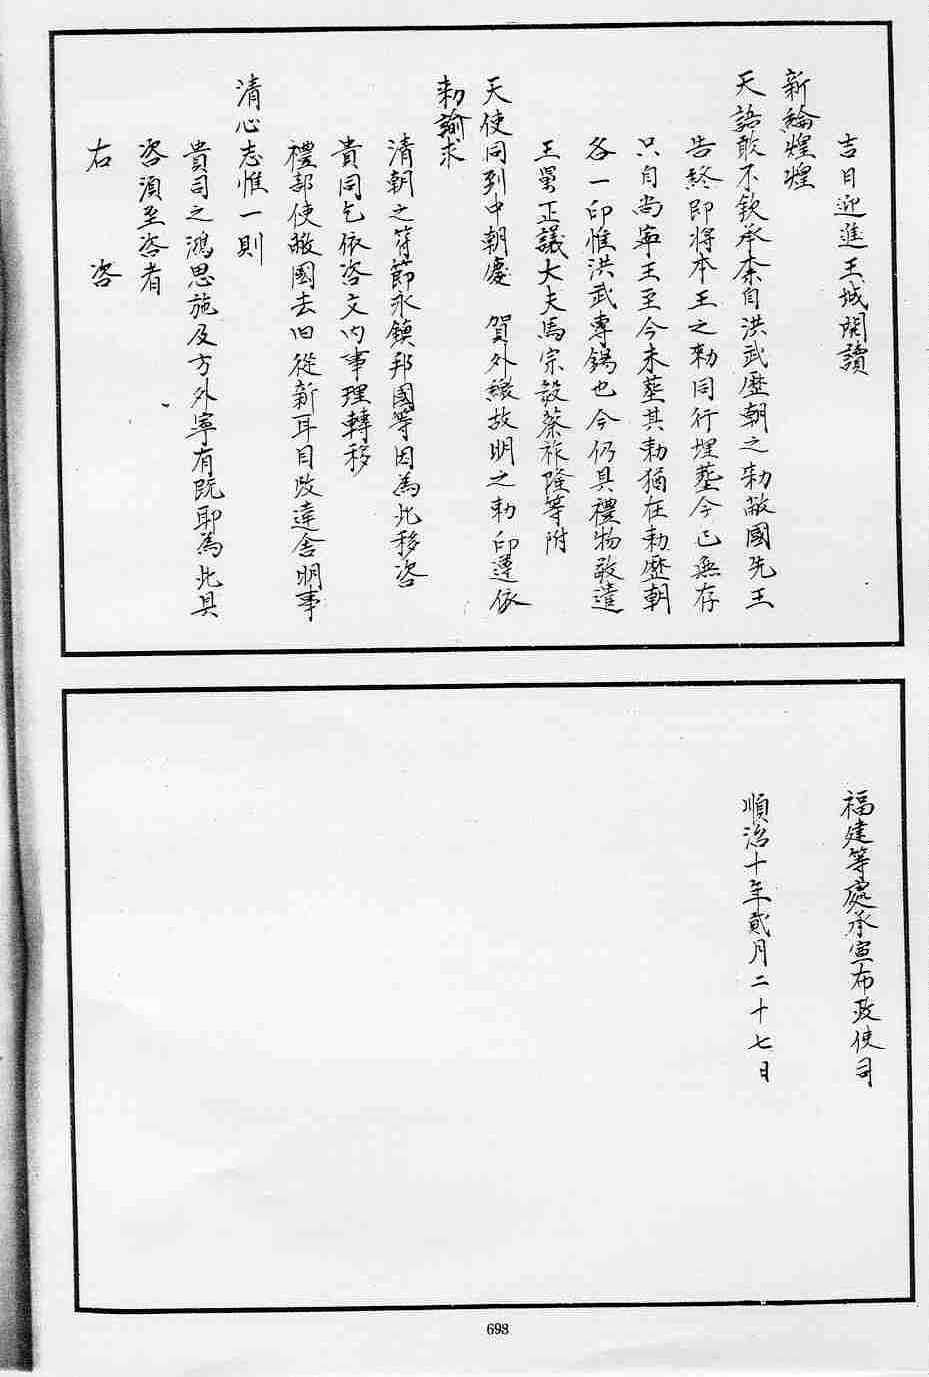 吉日迎進王城開讀
新綸煌煌
天語敢不欽承奈自洪武歷朝之勅敝國先王
告終即將本王之勅同行埋塟今已無存
只自尚寧王至今未塟其勅猶在勅歷朝
各一印惟洪武專鑄也今仍具禮物敬遣
王舅正議大夫馬宗毅蔡祚隆等附
天使同到中朝慶 賀外繳故明之勅印遵依
勅諭求
清朝之符節永鎮邦國等因為此移咨
貴司乞依咨文內事理轉移
禮部使敝國去旧從新耳目改違舍明事
清心志惟一則
貴司之鴻恩施及方外寧有既耶為此具
咨須至咨者
右 咨
福建等處承宣布政使司
順治十年貳月二十七日
698